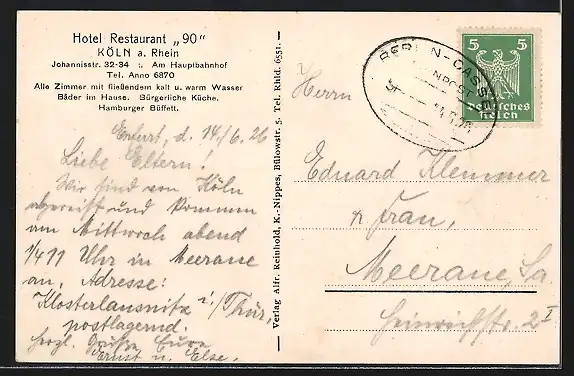 Hotel Restaurant „90"
KÖLN a. Rhein
Johannisstr. 32-34 :. Am Hauptbahnhof
Tel. Anno 6870
Alle Zimmer mit fließendem kalt u. warm Wasser
Bäder im Hause. Bürgerliche Küche.
Hamburger Büffett.
Erfurt, d. 14./6. 26
Liebe Eltern!
Wir sind von Köln
abgereist und kommen
am Mittwoch abend
1/4 11 Uhr in Meerane
an. Adresse:
Klosterlausnitz i/Thür.
postlagernd.
Herzl. Grüße Eure
Ernst u. Else.
Verlag Alfr. Reinhold, K.-Nippes, Bülowstr. 5. Tel. Rhld. 6551.
BERLIN-CASSEL
BAHNPOST
5 5
Deutsches
Reich
Herrn
Eduard Klemmer
u Frau,
Meerane, Sa.
Heinrichstr. 2 I